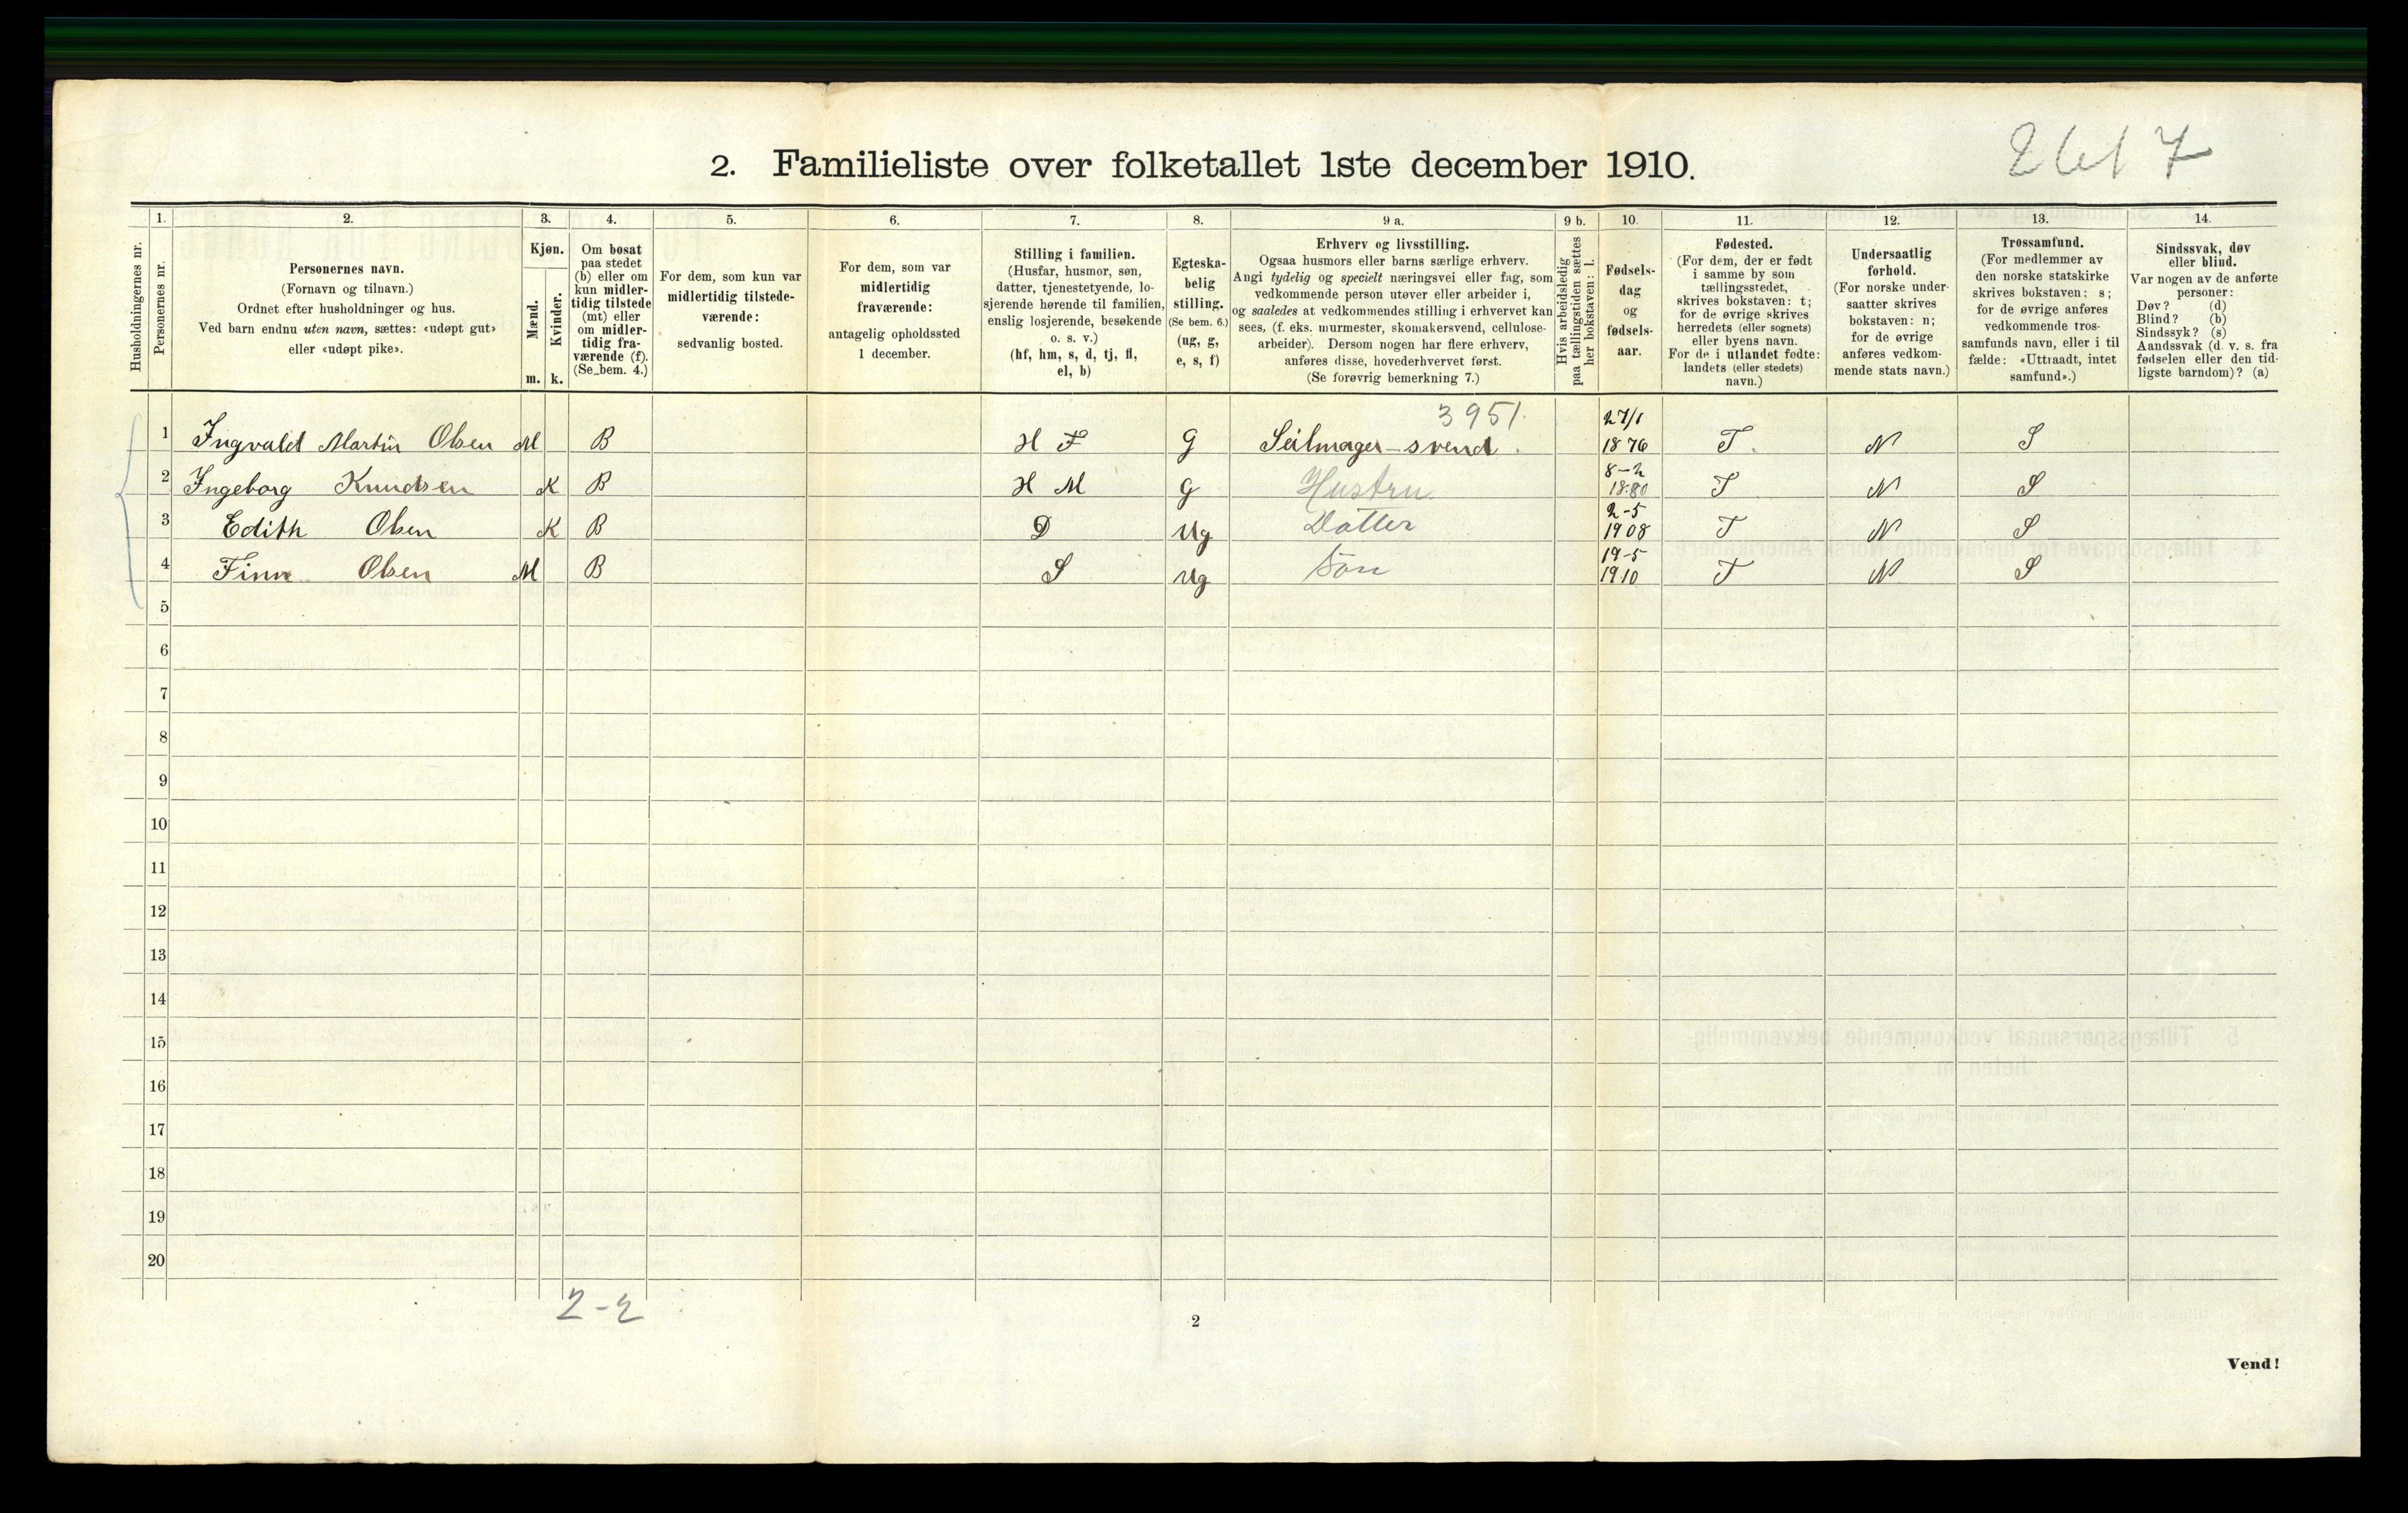 2617
2. Familieliste over folketallet 1ste december 1910.
Husholdningernes nr.
1.
Personernes nr.
2.
Personernes navn.
(Fornavn og tilnavn.)
Ordnet efter husholdninger og hus.
Ved barn endnu uten navn, sættes: «udøpt gut»
eller «udøpt pike».
3.
Kjøn.
Mænd.
Kvinder.
m. k.
4.
Om bosat
paa stedet
(b) eller om
kun midler-
tidig tilstede
(mt) eller
om midler-
tidig fra-
værende (f).
(Se bem. 4.)
5.
For dem, som kun var
midlertidig tilstede-
værende:
sedvanlig bosted.
6.
For dem, som var
midlertidig
fraværende:
antagelig opholdssted
1 december.
7.
Stilling i familien.
(Husfar, husmor, søn,
datter, tjenestetyende, lo-
sjerende hørende til familien,
enslig losjerende, besøkende
o. s. v.)
(hf, hm, s, d, tj, fl,
el, b)
8.
Egteska-
belig
stilling.
(Se bem. 6.)
(ug, g,
e, s, f)
9 a.
Erhverv og livsstilling.
Ogsaa husmors eller barns særlige erhverv.
Angi tydelig og specielt næringsvei eller fag, som
vedkommende person utøver eller arbeider i,
og saaledes at vedkommendes stilling i erhvervet kan
sees, (f. eks. murmester, skomakersvend, cellulose-
arbeider). Dersom nogen har flere erhverv,
anføres disse, hovederhvervet først.
(Se forøvrig bemerkning 7.)
9 b.
Hvis arbeidsledig
paa tællingstiden sættes
her bokstaven: l.
10.
Fødsels-
dag
og
fødsels-
aar.
11.
Fødested.
(For dem, der er født
i samme by som
tællingsstedet,
skrives bokstaven: t;
for de øvrige skrives
herredets (eller sognets)
eller byens navn.
For de i utlandet fødte:
landets (eller stedets)
navn.)
12.
Undersaatlig
forhold.
(For norske under-
saatter skrives
bokstaven: n;
for de øvrige
anføres vedkom-
mende stats navn.)
13.
Trossamfund.
(For medlemmer av
den norske statskirke
skrives bokstaven: s;
for de øvrige anføres
vedkommende tros-
samfunds navn, eller i til
fælde: «Uttraadt, intet
samfund».)
14.
Sindssvak, døv
eller blind.
Var nogen av de anførte
personer:
Døv? (d)
Blind? (b)
Sindssyk? (s)
Aandssvak (d. v. s. fra
fødselen eller den tid-
ligste barndom)? (a)
3951.
1 Ingvald Martin Olsen M B H F G Seilmager-svend. 27/1 1876 T. N S
2 Ingeborg Knudsen K B H M G Hustru 8-2 1880 T N S
3 Edith Olsen K B D Ug Datter 2-5 1908 T N S
4 Finn Olsen M B S Ug Søn 19-5 1910 T N S
5
6
7
8
9
10
11
12
13
14
15
16
17
18
19
20
2-2
2
Vend!